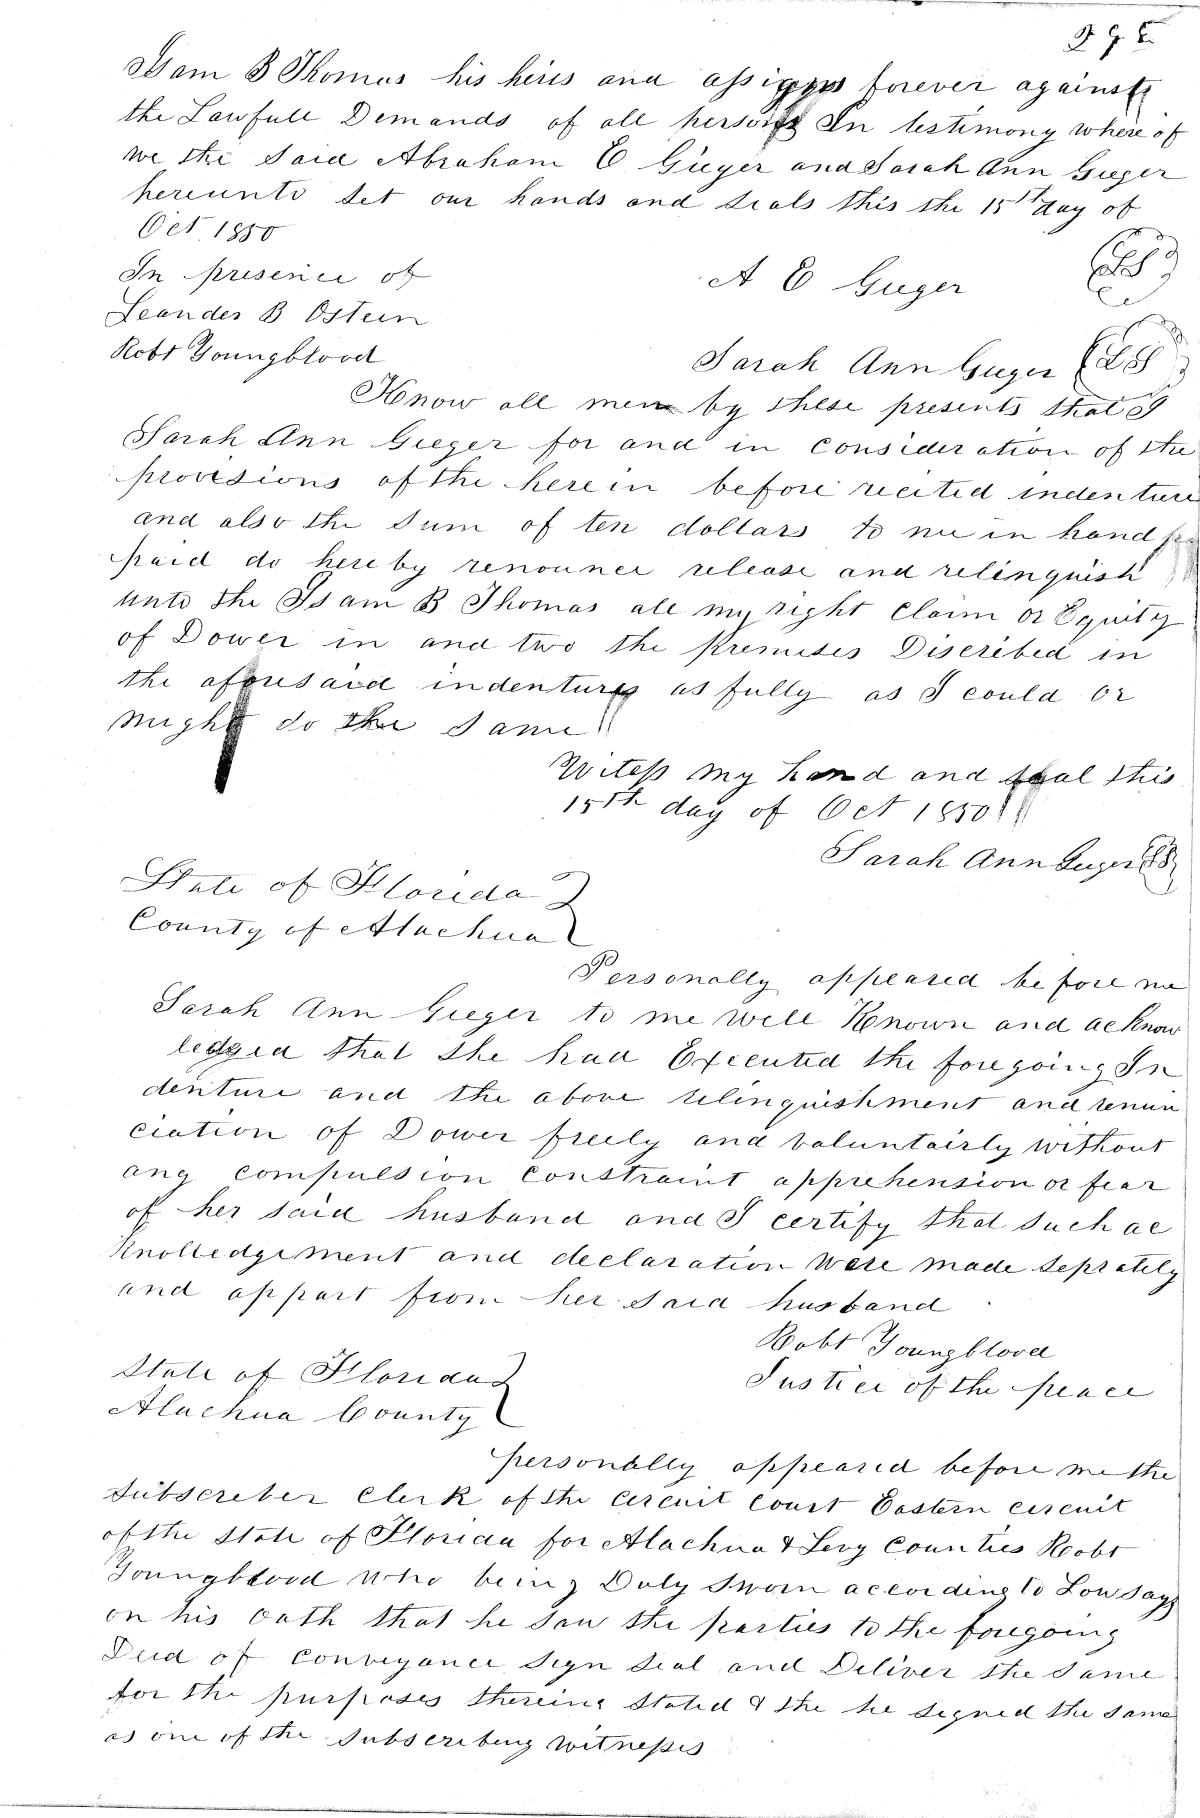 295
Isam B Thomas his heirs and assigns forever against
the Lawfull Demands of all persons In testimony where of
we the said Abraham E Gieger and Sarah Ann Gieger
hereunto set our hands and seals this the 15th day of
Oct 1850
In presence of
A E Gieger LS
Leander B Ostein
Robt Youngblood
Sarah Ann Gieger LS
Know all men by these presents that I
Sarah Ann Gieger for and in consideration of the
provisions of the herein before recited indenture
and also the sum of ten dollars to me in hand
paid do hereby renounce release and relinquish
unto the Isam B Thomas all my right claim or Equity
of Dower in and two the premises Discribed in
the aforesaid indenture as fully as I could or
might do the same
Witess my hand and seal this
15th day of Oct 1850
Sarah Ann Gieger LS
State of Florida
County of Alachua
Personally appeared before me
Sarah Ann Gieger to me well Known and acknow
ledged that she had Executed the foregoing In
denture and the above relinquishment and renun
ciation of Dower freely and voluntairly without
any compulsion constraint apprehension or fear
of her said husband and I certify that such ac
knolledgement and declaration were made seprately
and appart from her said husband
Robt Youngblood
Justice of the peace
State of Florida
Alachua County
personally appeared before me the
subscriber Clerk of the circuit court Eastern circuit
of the State of Florida for Alachua & Levy Counties Robt
Youngblood who being Duly sworn according to Law says
on his oath that he saw the parties to the foregoing
Deed of conveyance sign seal and Deliver the same
for the purposes thereing stated & the he signed the same
as one of the subscribing witnesses